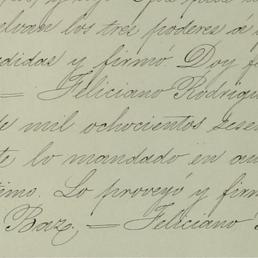 los tres poderes á
y firmó Doy
= Feliciano Rodrigu
de mil ochocientos sese
lo mandado en au
timo. Lo proveyó y firm
Baz. = Feliciano